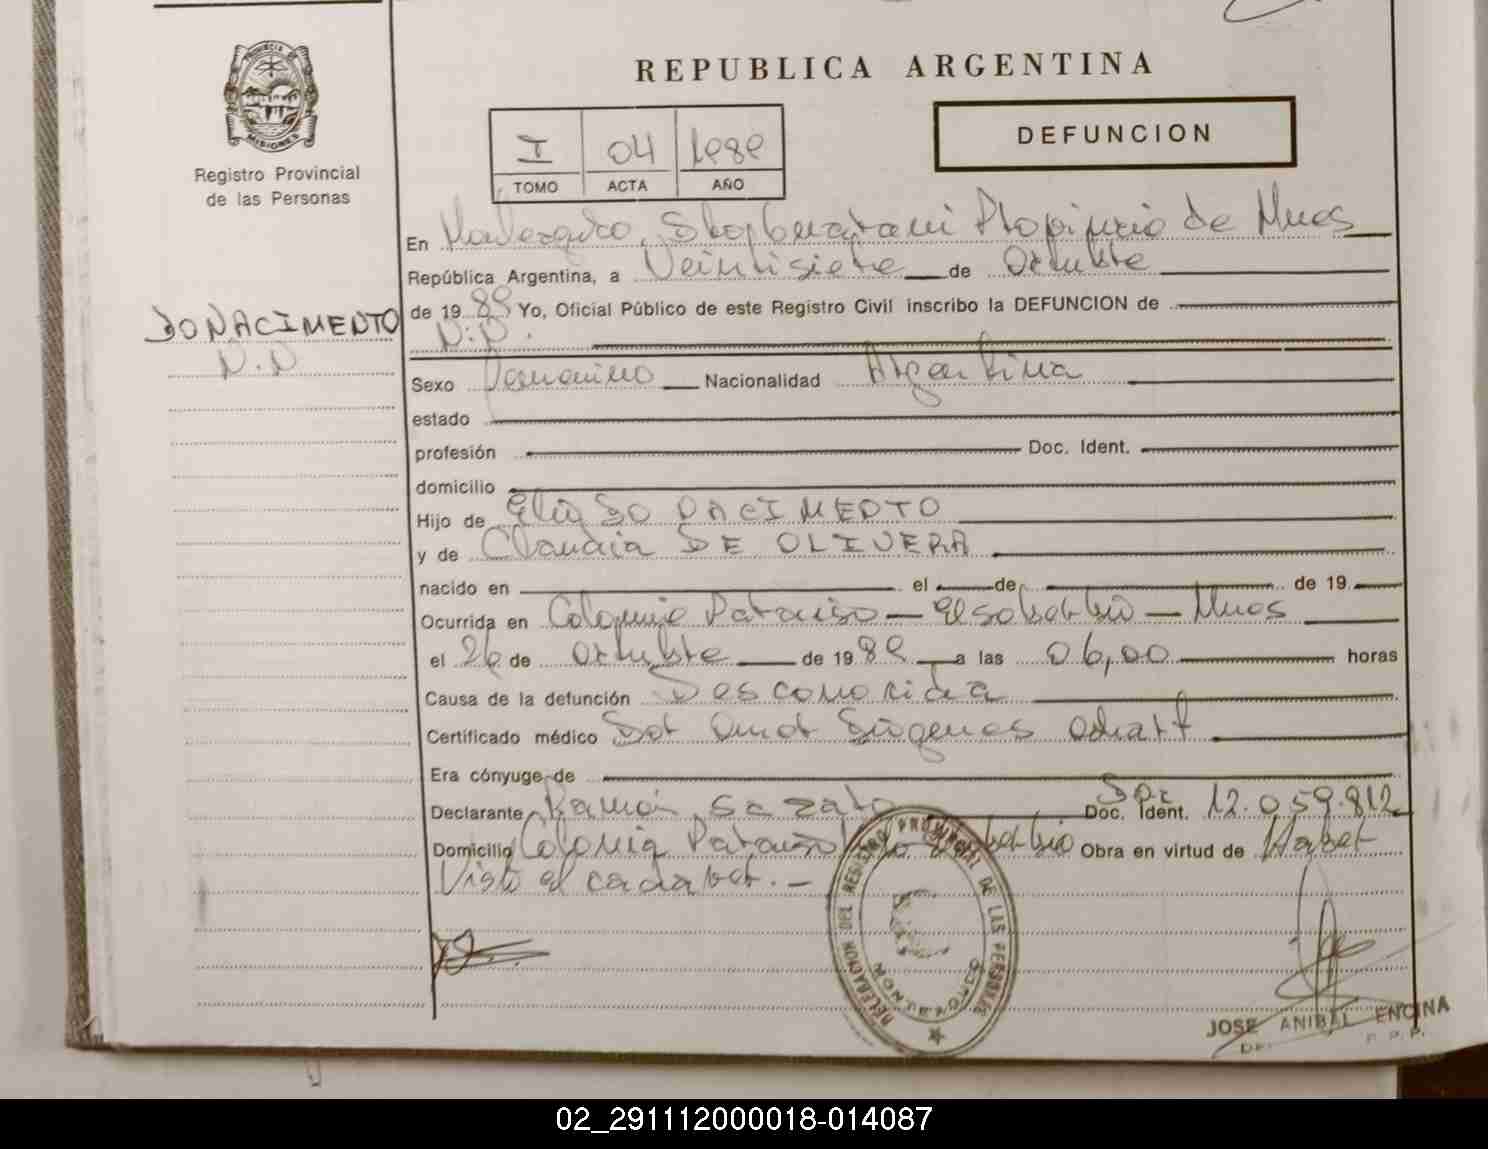 PROVINCIA DE MISIONES
Registro Provincial
de las Personas
REPUBLICA ARGENTINA
I 04 1989
TOMO ACTA AÑO
DEFUNCION
En Provincia de Mnes
República Argentina, a Veintisiete de Octubre
de 1989 Yo, Oficial Público de este Registro Civil inscribo la DEFUNCION de
DO NACIMENTO
N.N.
N.N
Sexo Femenino Nacionalidad Argentina
estado
profesión Doc. Ident.
domicilio
Hijo de Elio DO NACIMENTO
y de Claudia DE OLIVERA
nacido en el de de 19
Ocurrida en Colonia Paraiso - El soberbio - Mnes
el 26 de Octubre de 1989 a las 06,00 horas
Causa de la defunción Desconocida
Certificado médico Diogenes
Era cónyuge de
Declarante Ramón Doc. Ident. 12.059.812
Domicilio Colonia Paraiso Soberbio Obra en virtud de Haber
Visto el cadaver.-
DELEGACION DEL REGISTRO PROVINCIAL DE LAS PERSONAS
JOSE ANIBAL ENCINA
02_291112000018-014087